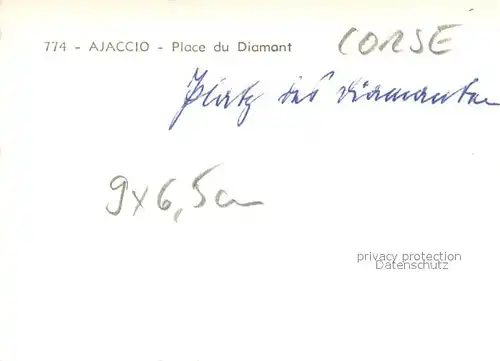 774 - AJACCIO - Place du Diamant
CORSE
Platz des Diamanten
9x6,5cm
privacy protection
Datenschutz